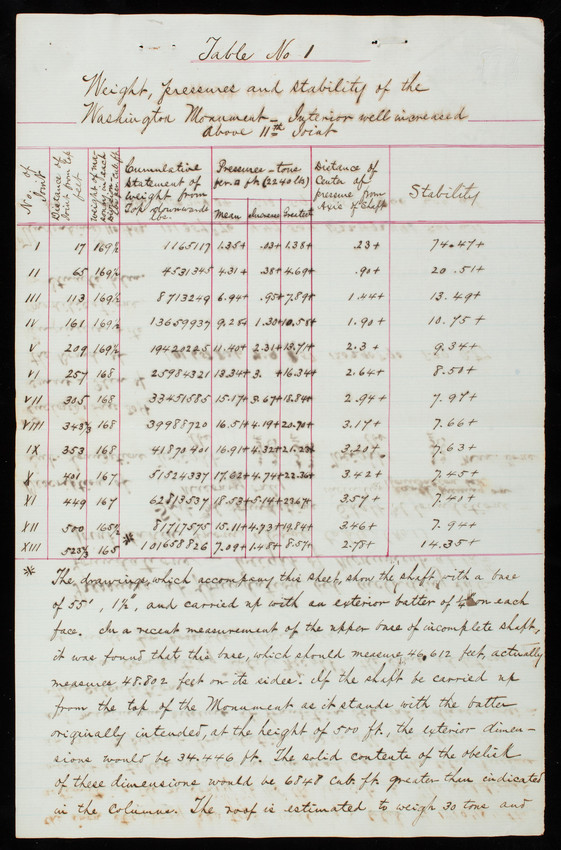 Table No 1
Weight, pressures and stability of the
Washington Monument - Interior well increased
above 11th Joint
No. of Joint | Distance of Joint from top feet | Weight of material in each per cub. ft. | Cumulative statement of weight from Top downwards lbs. | Pressures - tons per □ ft. (2240 lbs) Mean | Increase | Greatest | Distance of Center of pressure from Axis of Shaft | Stability
I 17 169½ 1165117 1.35+ .03+ 1.38+ .23+ 74.47+
II 65 169½ 4531345 4.31+ .38+ 4.69+ .90+ 20.51+
III 113 169½ 8713249 6.94+ .95+ 7.89+ 1.44+ 13.49+
IV 161 169½ 13659937 9.28+ 1.30+ 10.58+ 1.90+ 10.75+
V 209 169½ 19420225 11.40+ 2.31+ 13.71+ 2.3+ 9.34+
VI 257 168 25984321 13.34+ 3. + 16.34+ 2.64+ 8.50+
VII 305 168 33451585 15.17+ 3.67+ 18.84+ 2.94+ 7.97+
VIII 343⅓ 168 39988720 16.51+ 4.19+ 20.70+ 3.17+ 7.66+
IX 353 168 41870401 16.91+ 4.32+ 21.23+ 3.20+ 7.63+
X 401 167 51524337 17.62+ 4.74+ 22.36+ 3.42+ 7.45+
XI 449 167 62813537 18.53+ 5.14+ 23.67+ 3.57+ 7.41+
XII 500 165½ 81717575 15.11+ 4.73+ 19.84+ 3.46+ 7.94+
XIII 523⅓ 165 * 101658826 7.09+ 1.48+ 8.57+ 2.75+ 14.35+
* The drawings which accompany this sheet, show the shaft with a base
of 55', 1½", and carried up with an exterior batter of on each
face. In a recent measurement of the upper base of incomplete shaft,
it was found that this base, which should measure 46.612 feet, actually
measures 48.802 feet on its sides. If the shaft be carried up
from the top of the Monument as it stands with the batter
originally intended, at the height of 500 ft., the exterior dimen-
sions would be 34.446 ft. The solid contents of the obelisk
of these dimensions would be 6848 cub. ft. greater than indicated
in the columns. The roof is estimated to weigh 30 tons and